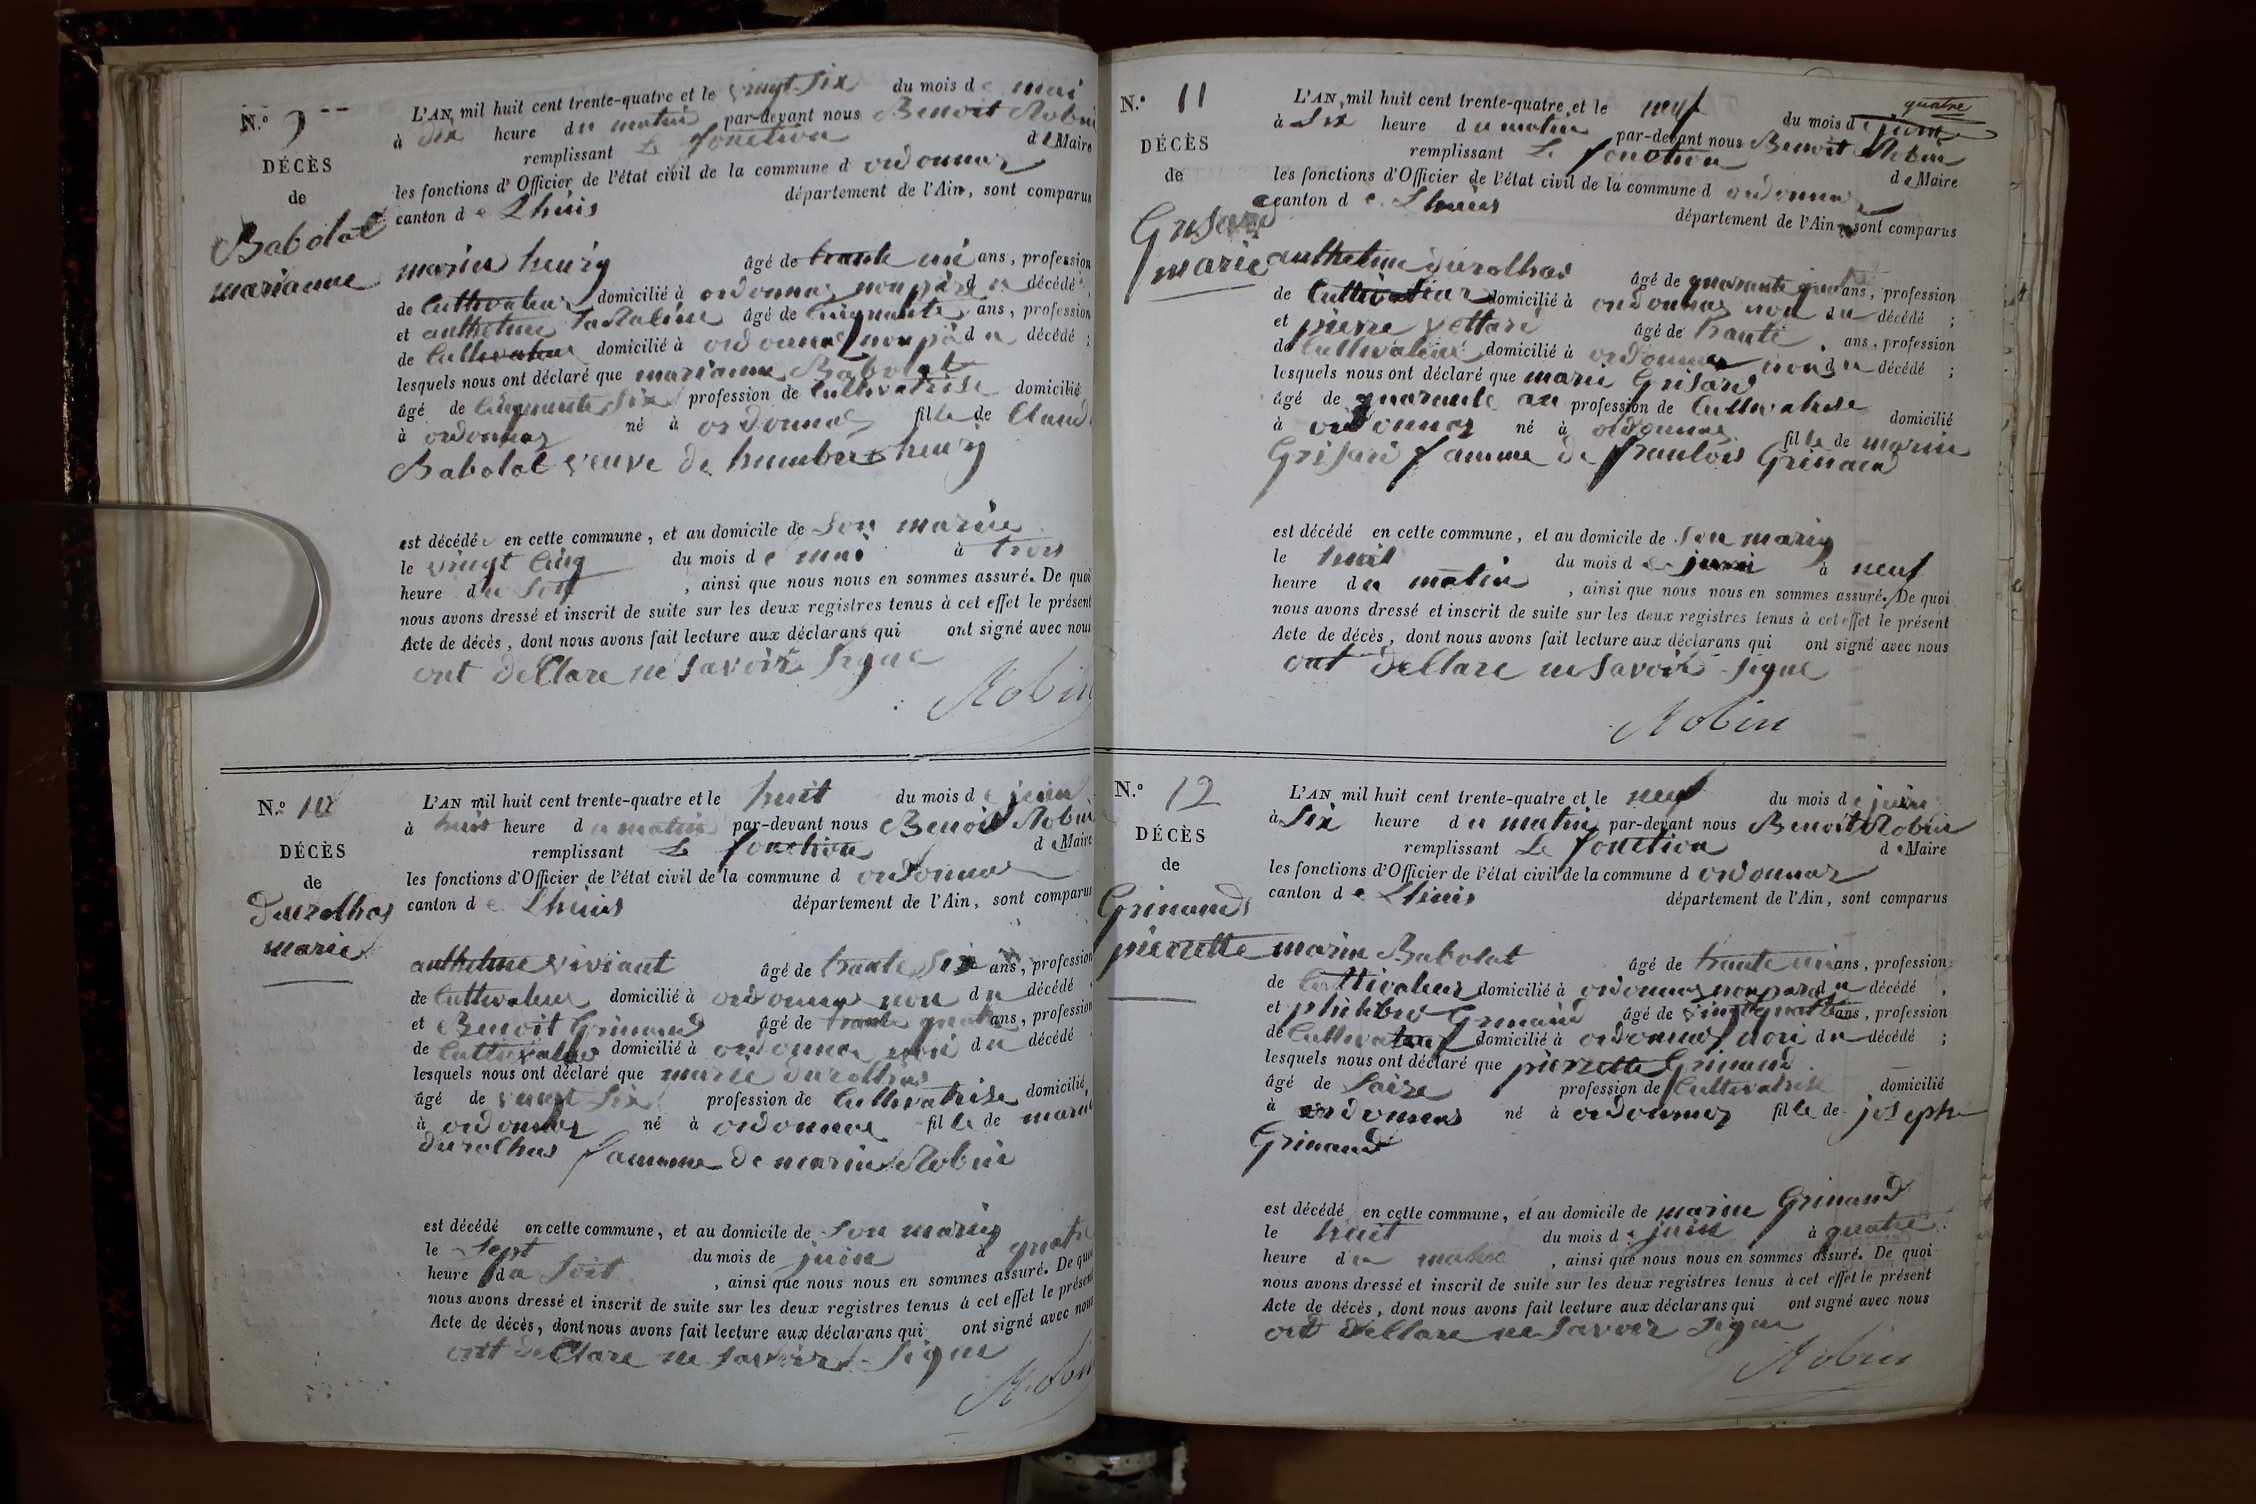 N.° 9
DÉCÈS
de
Babolat
marianne
L'AN mil huit cent trente-quatre et le vingt six du mois de mai
à six heure du matin par-devant nous Benoit Robin
remplissant Le fonction de Maire
les fonctions d'Officier de l'état civil de la commune d ordonnas
canton de Lhuis département de l'Ain, sont comparus
marin henry âgé de trante un ans, profession
de Cultivateur domicilié à ordonnas non par du décédé ;
et anthelme âgé de Cinquante ans, profession
de Cultivateur domicilié à ordonnas non du décédé ;
lesquels nous ont déclaré que marianne Babolat
âgé de Cinquante six profession de Cultivatrise domicilié
à ordonnas né à ordonnas fille de Claude
Babolat veuve de humbert henry
est décédé en cette commune, et au domicile de Son
le vingt Cinq du mois de mai à trois
heure du Soir, ainsi que nous nous en sommes assuré. De quoi
nous avons dressé et inscrit de suite sur les deux registres tenus à cet effet le présent
Acte de décès, dont nous avons fait lecture aux déclarans qui ont signé avec nous
ont deClare ne Savoir Signe
Robin
N.° 10
DÉCÈS
de
Durolhas
marie
L'AN mil huit cent trente-quatre et le huit du mois de juin
à huit heure du matin par-devant nous Benoit Robin
remplissant Le fonction de Maire
les fonctions d'Officier de l'état civil de la commune d ordonnas
canton de Lhuis département de l'Ain, sont comparus
anthelme viviant âgé de trante Six ans, profession
de Cultivateur domicilié à ordonnas non du décédé ,
et Benoit Grinand âgé de trante quatre ans, profession
de Cultivateur domicilié à ordonnas non du décédé ;
lesquels nous ont déclaré que marie durolhas
âgé de vingt Six profession de Cultivatrise domicilié
à ordonnas né à ordonnas fille de marin
durolhas famme de marin Robin
est décédé en cette commune, et au domicile de Son marie
le Sept du mois de juin à quatre
heure du Soir, ainsi que nous nous en sommes assuré. De quoi
nous avons dressé et inscrit de suite sur les deux registres tenus à cet effet le présent
Acte de décès, dont nous avons fait lecture aux déclarans qui ont signé avec nous
ont deClare ne Savoir Signe
Robin
N.° 11
DÉCÈS
de
Grisard
marie
L'AN mil huit cent trente-quatre et le neuf du mois de juin
quatre
à Six heure du matin par-devant nous Benoit Robin
remplissant Le fonction de Maire
les fonctions d'Officier de l'état civil de la commune d ordonnas
canton de Lhuis département de l'Ain, sont comparus
anthelme durolhas âgé de quarante quatre ans, profession
de Cultivateur domicilié à ordonnas non du décédé ;
et pierre vettard âgé de trante ans, profession
de Cultivateur domicilié à ordonnas non du décédé ;
lesquels nous ont déclaré que marie Grisard
âgé de quarante an profession de Cultivatrise domicilié
à ordonnas né à ordonnas fille de marin
Grisard famme de franCois Grinand
est décédé en cette commune, et au domicile de Son marie
le huit du mois de juin à neuf
heure du matin, ainsi que nous nous en sommes assuré. De quoi
nous avons dressé et inscrit de suite sur les deux registres tenus à cet effet le présent
Acte de décès, dont nous avons fait lecture aux déclarans qui ont signé avec nous
ont deClare ne Savoir Signe
Robin
N.° 12
DÉCÈS
de
Grinand
pierrette
L'AN mil huit cent trente-quatre et le neuf du mois de juin
à Six heure du matin par-devant nous Benoit Robin
remplissant Le fonction de Maire
les fonctions d'Officier de l'état civil de la commune d ordonnas
canton de Lhuis département de l'Ain, sont comparus
marin Babolat âgé de trante un ans, profession
de Cultivateur domicilié à ordonnas non par du décédé ,
et philibert Grinand âgé de vingt quatre ans, profession
de Cultivateur domicilié à ordonnas non du décédé ;
lesquels nous ont déclaré que pierrette Grinand
âgé de Saize profession de Cultivatrise domicilié
à ordonnas né à ordonnas fille de joseph
Grinand
est décédé en cette commune, et au domicile de marin Grinand
le huit du mois de juin à quatre
heure du matin, ainsi que nous nous en sommes assuré. De quoi
nous avons dressé et inscrit de suite sur les deux registres tenus à cet effet le présent
Acte de décès, dont nous avons fait lecture aux déclarans qui ont signé avec nous
ont deClare ne Savoir Signe
Robin